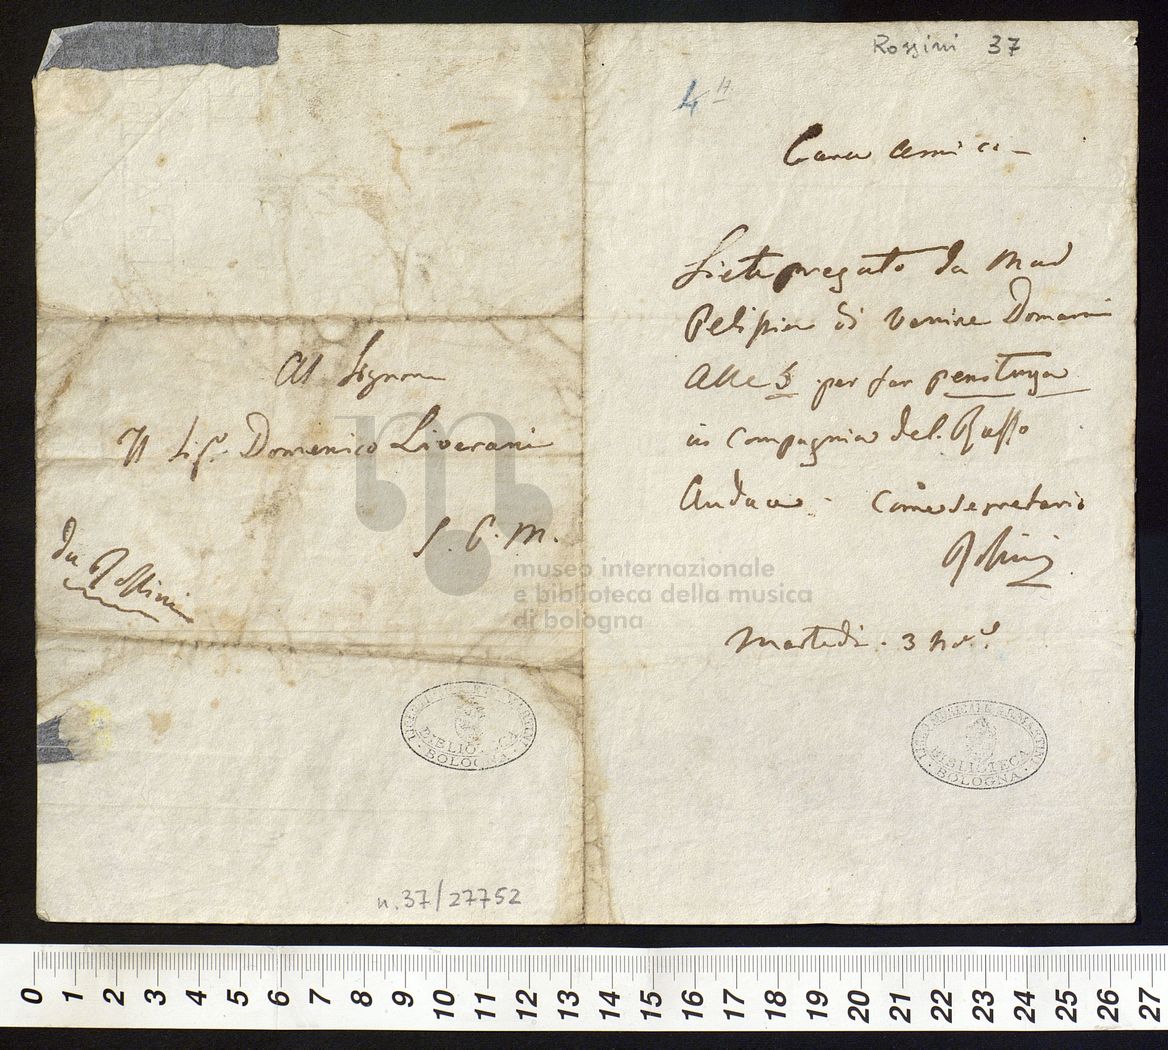 Rossini 37
4
Caro amico
Siete pregato da Mad
Pelissier di venire Domani
Alle 5 per far penitenza
in Compagnia del Basso
Come Segretario
Rossini
Martedi. 3 Nbre
Al Signore
Il Sigr. Domenico Liverani
S. P. M.
da Rossini
museo internazionale
e biblioteca della musica
di bologna
BIBLIOTECA
BOLOGNA
BIBLIOTECA
BOLOGNA
n. 37/27752
0 1 2 3 4 5 6 7 8 9 10 11 12 13 14 15 16 17 18 19 20 21 22 23 24 25 26 27